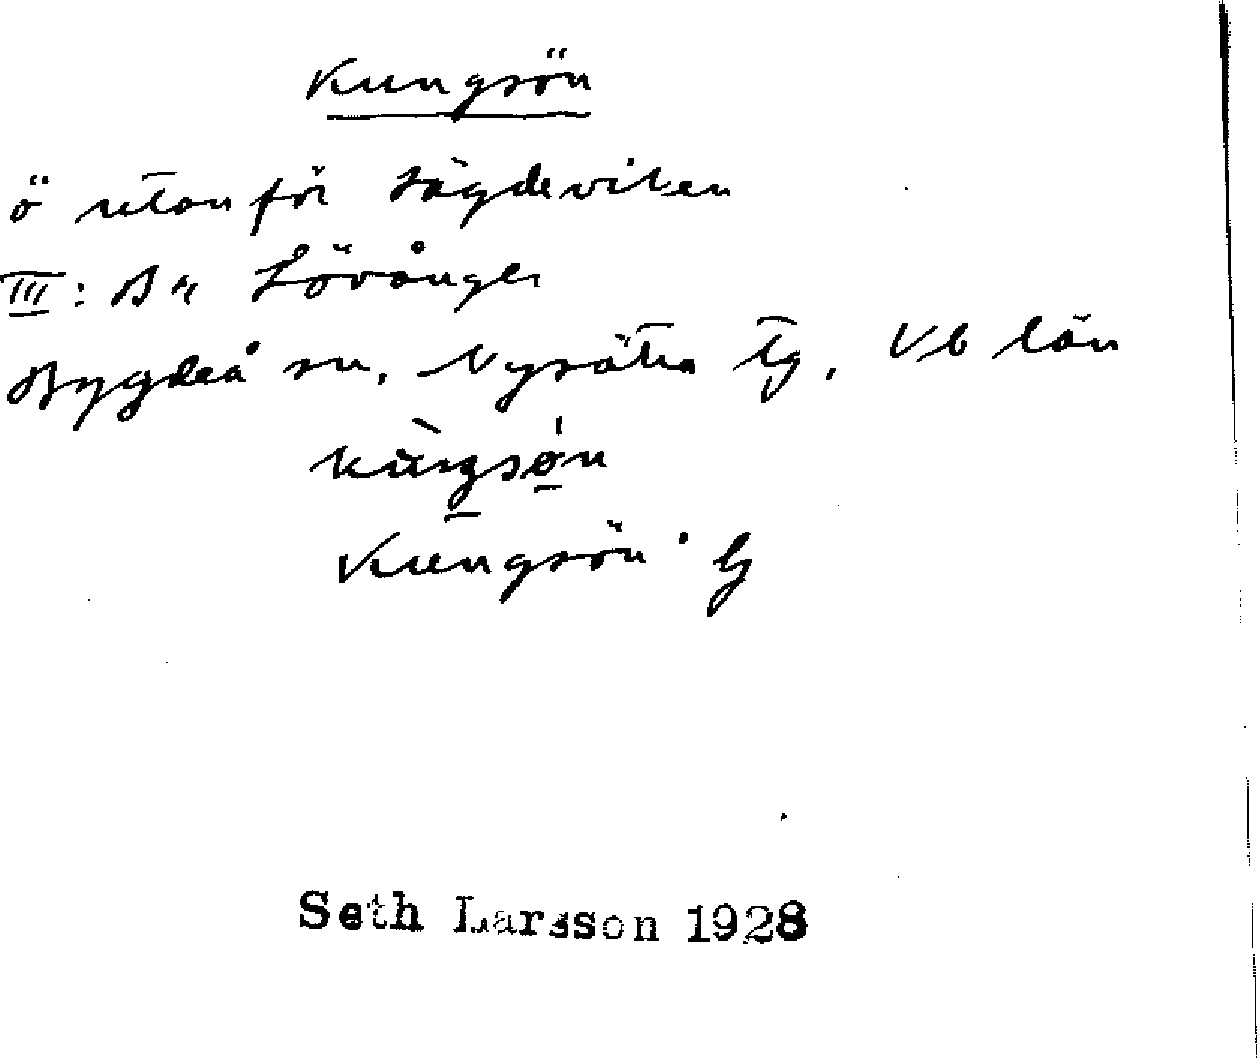 Kungsön
ö utanför Sägdeviken
III: B" Lövånger
Bygdeå sn, Nysätra tg, Vb län
kùŋsǿn
Kungsön
Seth Larsson 1928